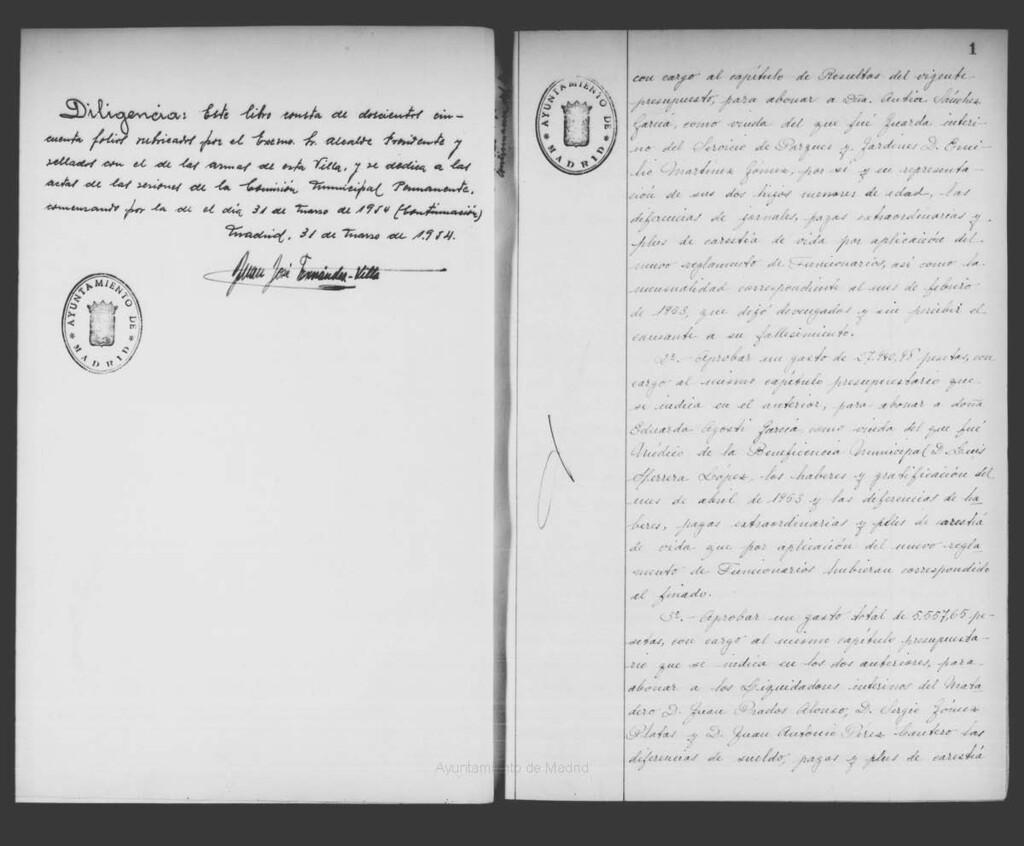 Diligencia: Este libro consta de doscientos cin-
cuenta folios rubricados por el Excmo. Sr. Alcalde Presidente y
sellados con el de las armas de esta Villa, y se dedica a las
actas de las sesiones de la Comisión Municipal Permanente,
comenzando por la de el día 31 de Marzo de 1954 (Continuación)
Madrid, 31 de Marzo de 1.954.
Juan José Fernández-Villa
AYUNTAMIENTO DE
MADRID
1
AYUNTAMIENTO DE
MADRID
con cargo al capítulo de Resultas del vigente
presupuesto, para abonar a Dña. Sánchez
García, como viuda del que fué Guarda interi-
no del Servicio de Parques y Jardines D. Emi-
lio Martínez Gómez, por sí y en representa-
ción de sus dos hijos menores de edad, las
diferencias de jornales, pagas extraordinarias y
plus de carestía de vida por aplicación del
nuevo reglamento de Funcionarios, así como la
mensualidad correspondiente al mes de febrero
de 1953, que dejó devengados y sin percibir el
causante a su fallecimiento.
2º.- Aprobar un gasto de pesetas, con
cargo al mismo capítulo presupuestario que
se indica en el anterior, para abonar a doña
Eduarda Agosti García, como viuda del que fué
Médico de la Beneficencia Municipal D. Luis
Herrera López, los haberes y gratificación del
mes de abril de 1953 y las diferencias de ha
beres, pagas extraordinarias y plus de carestía
de vida que por aplicación del nuevo regla
mento de Funcionarios hubieran correspondido
al finado.
3º.- Aprobar un gasto total de 5.557,65 pe-
setas, con cargo al mismo capítulo presupuesta-
rio que se indica en los dos anteriores, para
abonar a los Liquidadores interinos del Mata
dero D. Juan Prados Alonso, D. Sergio Gómez
Platas y D. Juan Antonio Pérez Cantero las
diferencias de sueldo, pagas y plus de carestía
Ayuntamiento de Madrid